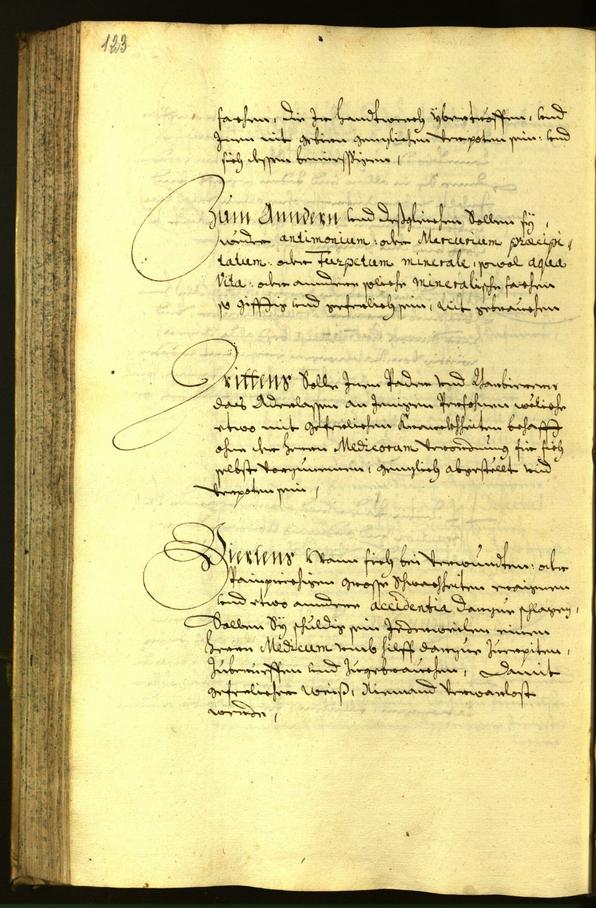 123
sachen, die Ir handtwerch ybertröffen, und
Inen nit gebiren genzlichen verpoten sein: und
sich dessen bemiessigen,
Zum Anndern und desgleichen Sollen sÿ
weder antimonium: oder Mercurium præcipi-
tatum: oder Turpetum minerale, sowol aqua
vita: oder anndere solche mineralische sachen
so gifftig und geferlich sein, nit gebrauchen
Drittens Solle Inen Padern und Barbierern
das Aderlassen an Jenigen Persohnen wöliche
etwo mit geferlichen Kranckheiten behafft
ohne der herrn Medicorum verordnung für sich
selbst vorzunemen, genzlich abgestellt und
verpoten sein,
Viertens Wann sich bei verwundten: oder
Painprichigen grosse Schwachheiten eraignen
und etwo anndere accidentia darzue schlagen,
Sollen Sÿ schuldig sein Jederweilen einen
herrn Medicum umb hilff darzue zuerpiten,
zuberueffen und zugebrauchen, Damit
geferlicher weiß, Niemand verwarlost
werde,